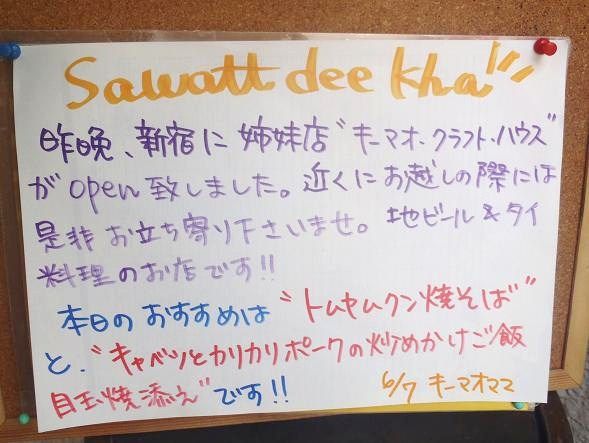 Sawatt dee kha!!
昨晩、新宿に姉妹店"キーマオ・クラフト・ハウス"
がopen致しました。近くにお越しの際には
是非お立ち寄り下さいませ。地ビール&タイ
料理のお店です!!
本日のおすすめは"トムヤムクン焼そば"
と、"キャベツとカリカリポークの炒めかけご飯
目玉焼添え"です!!
6/7 キーマオママ